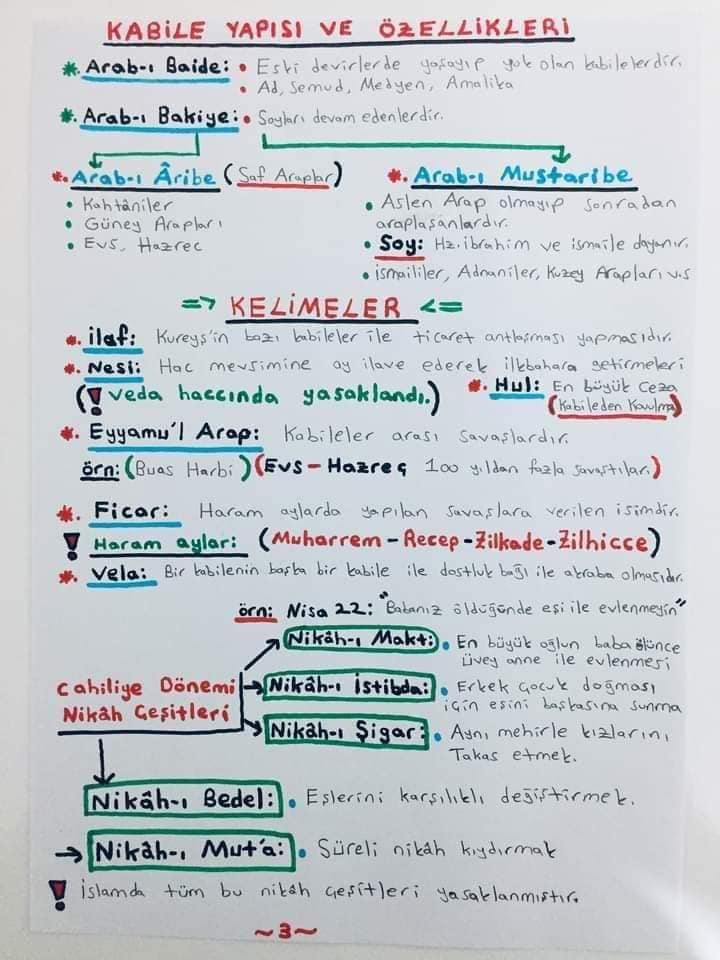 KABİLE YAPISI VE ÖZELLİKLERİ
* Arab-ı Baide: • Eski devirlerde yaşayıp yok olan kabilelerdir.
• Ad, Semud, Medyen, Amalika
* Arab-ı Bakiye: • Soyları devam edenlerdir.
*. Arab-ı Âribe (Saf Araplar)
• Kahtâniler
• Güney Arapları
• Evs, Hazrec
*. Arab-ı Mustaribe
• Aslen Arap olmayıp sonradan
araplaşanlardır.
• Soy: Hz. ibrahim ve ismaile dayanır.
• ismaililer, Adnaniler, Kuzey Arapları v.s
=> KELİMELER <=
*. ilaf: Kureyş'in bazı kabileler ile ticaret antlaşması yapmasıdır.
*. Nesi: Hac mevsimine ay ilave ederek ilkbahara getirmeleri
(! Veda haccında yasaklandı.)
*. Hul: En büyük Ceza
(Kabileden Kovulma)
*. Eyyamu'l Arap: Kabileler arası savaşlardır.
örn: (Buas Harbi) (Evs - Hazreç 100 yıldan fazla savaştılar)
*. Ficar: Haram aylarda yapılan savaşlara verilen isimdir.
! Haram aylar: (Muharrem - Recep - Zilkade - Zilhicce)
*. Vela: Bir kabilenin başka bir kabile ile dostluk bağı ile akraba olmasıdır.
örn: Nisa 22: "Babanız öldüğünde eşi ile evlenmeyin"
Cahiliye Dönemi
Nikâh Çeşitleri
Nikâh-ı Makt: • En büyük oğlun baba ölünce
üvey anne ile evlenmesi
Nikâh-ı İstibda: • Erkek çocuk doğması
için eşini başkasına sunma
Nikâh-ı Şigar: • Aynı mehirle kızlarını,
Takas etmek.
Nikâh-ı Bedel: • Eşlerini karşılıklı değiştirmek.
→ Nikâh-ı Mut'a: • Süreli nikâh kıydırmak
! İslamda tüm bu nikâh çeşitleri yasaklanmıştır.
~3~